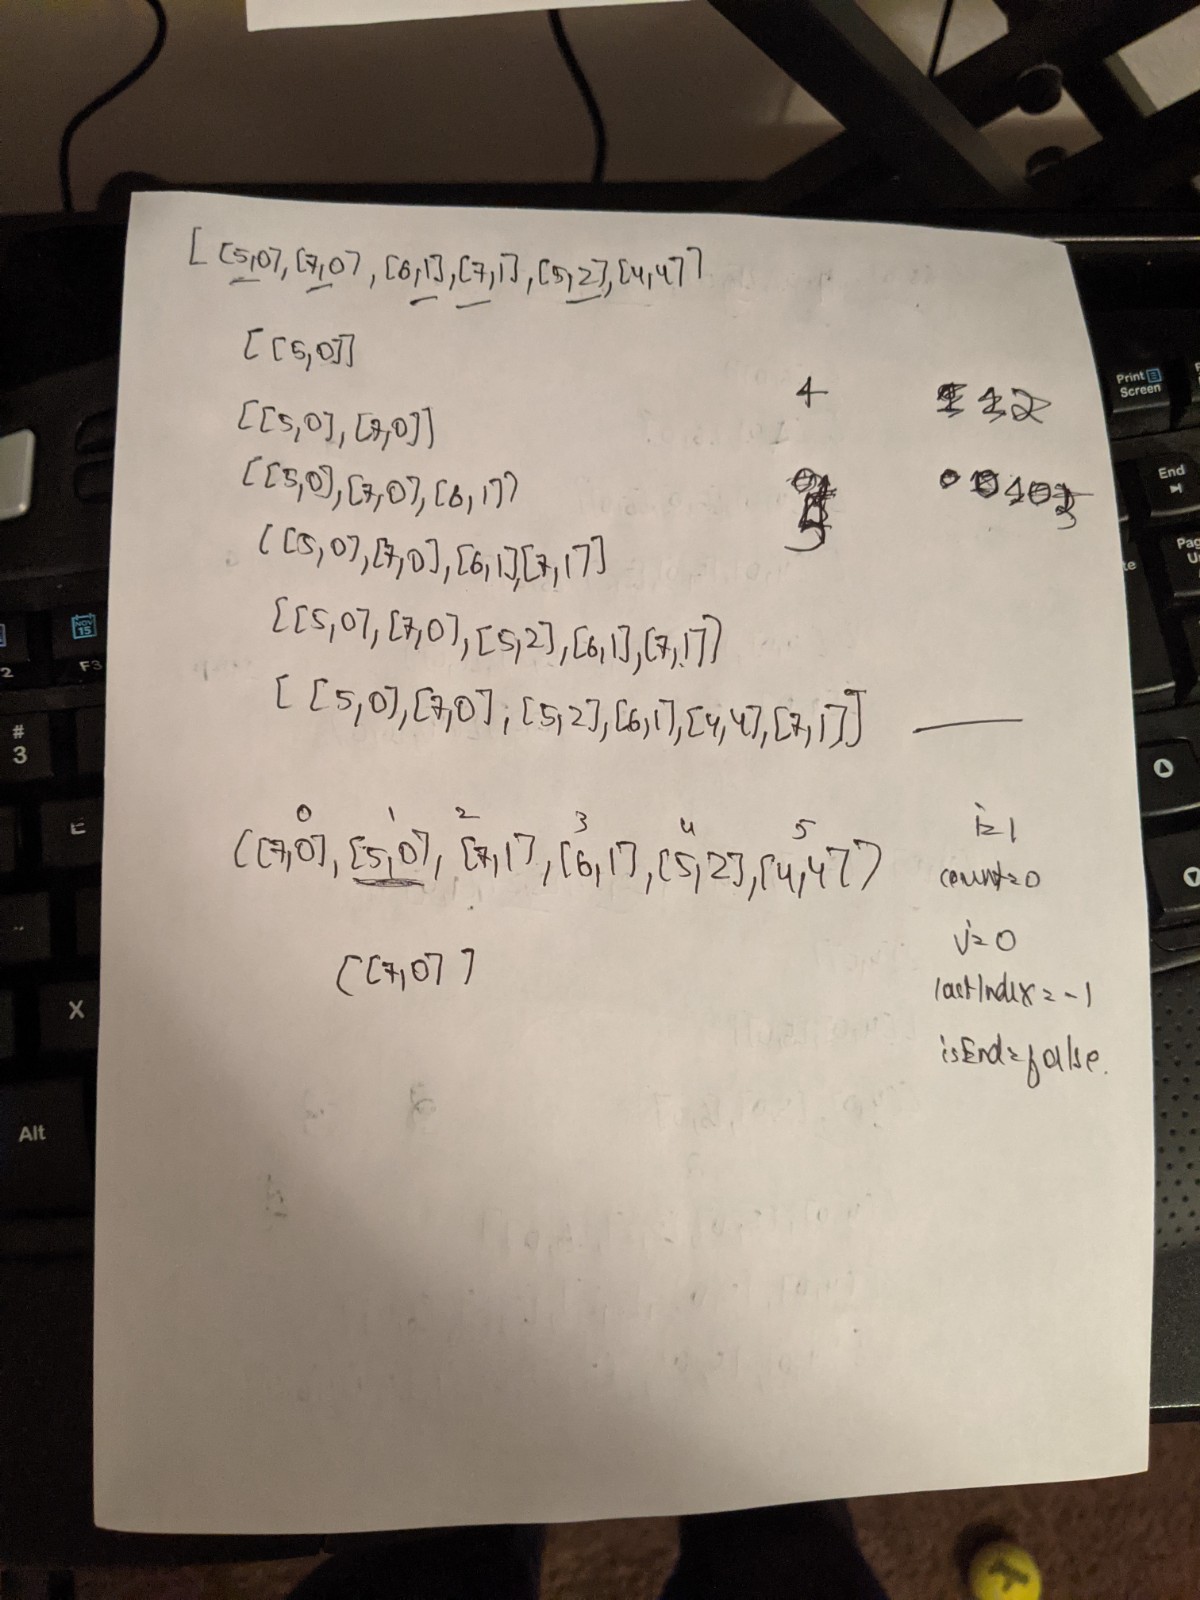 [ [5,0], [7,0], [6,1], [7,1], [5,2], [4,4]]
[ [5,0]]
[[5,0], [7,0]]
[[5,0], [7,0], [6,1]]
[[5,0], [7,0], [6,1], [7,1]]
[[5,0], [7,0], [5,2], [6,1], [7,1]]
[ [5,0], [7,0], [5,2], [6,1], [4,4], [7,1]]
4
2
0 1 2 3 4 5
[[7,0], [5,0], [7,1], [6,1], [5,2], [4,4]]
[[7,0]]
i=1
count=0
j=0
lastIndex=-1
isEnd=false.
Print
Screen
End
Pag
F3
#
3
X
Alt
NOV
15
2